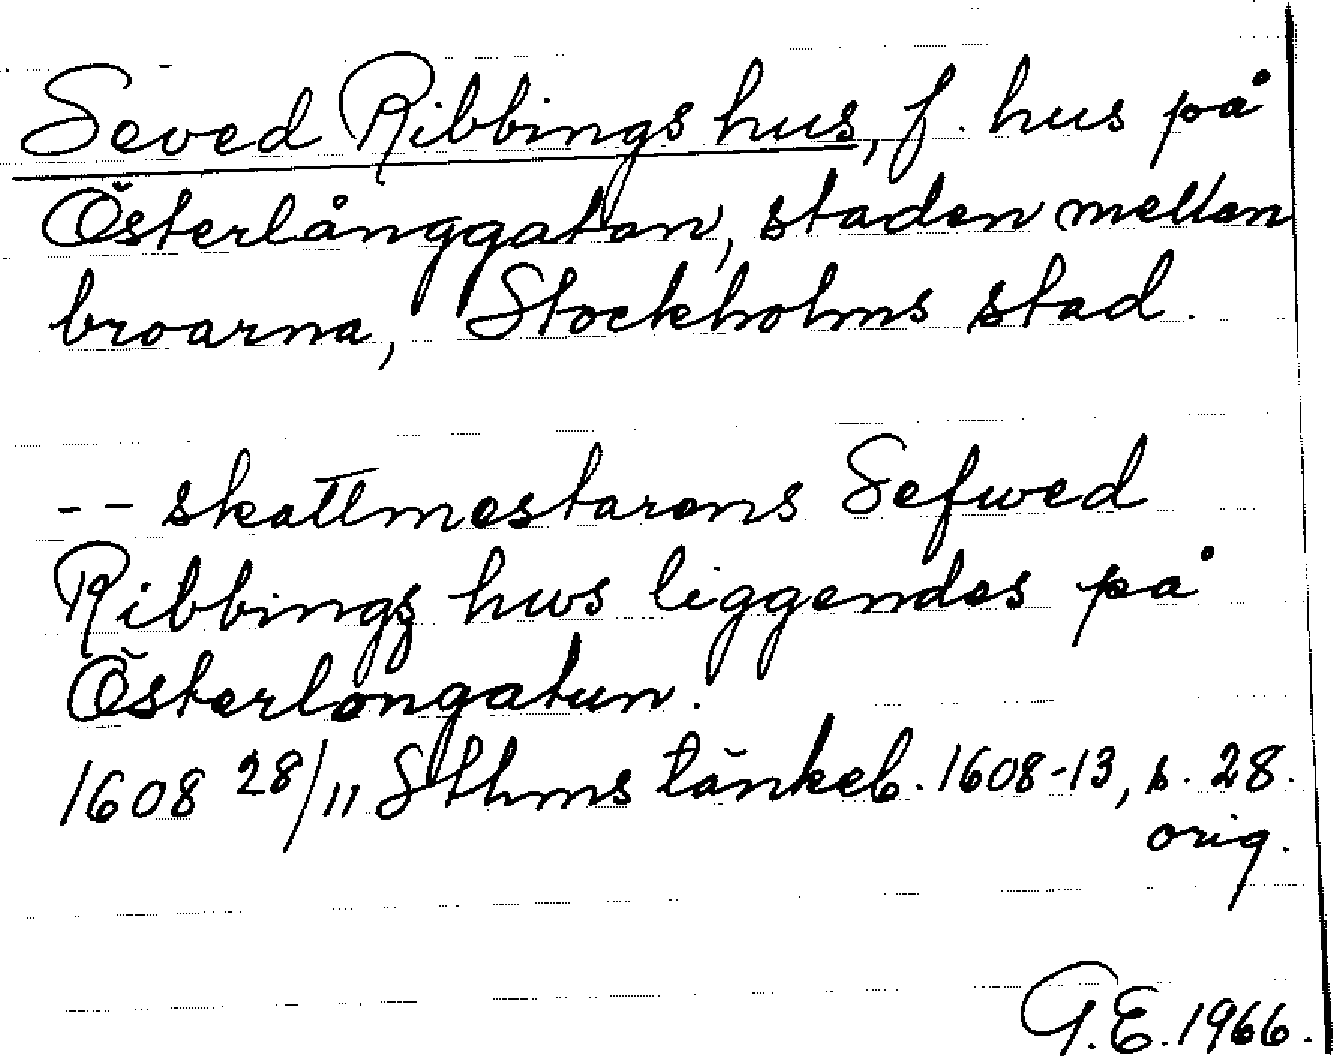 Seved Ribbings hus, f. hus på
Österlånggatan, staden mellan
broarna, Stockholms stad.
-- skattmestarens Sefwed
Ribbingz hws liggendes på
Österlongatun.
1608 28/11 Sthms tänkeb. 1608-13, s. 28.
orig.
G.E. 1966.